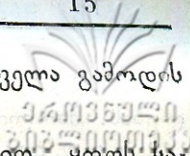 15
ველა გამოდის
ეროვნული
ბიბლიოთეკა